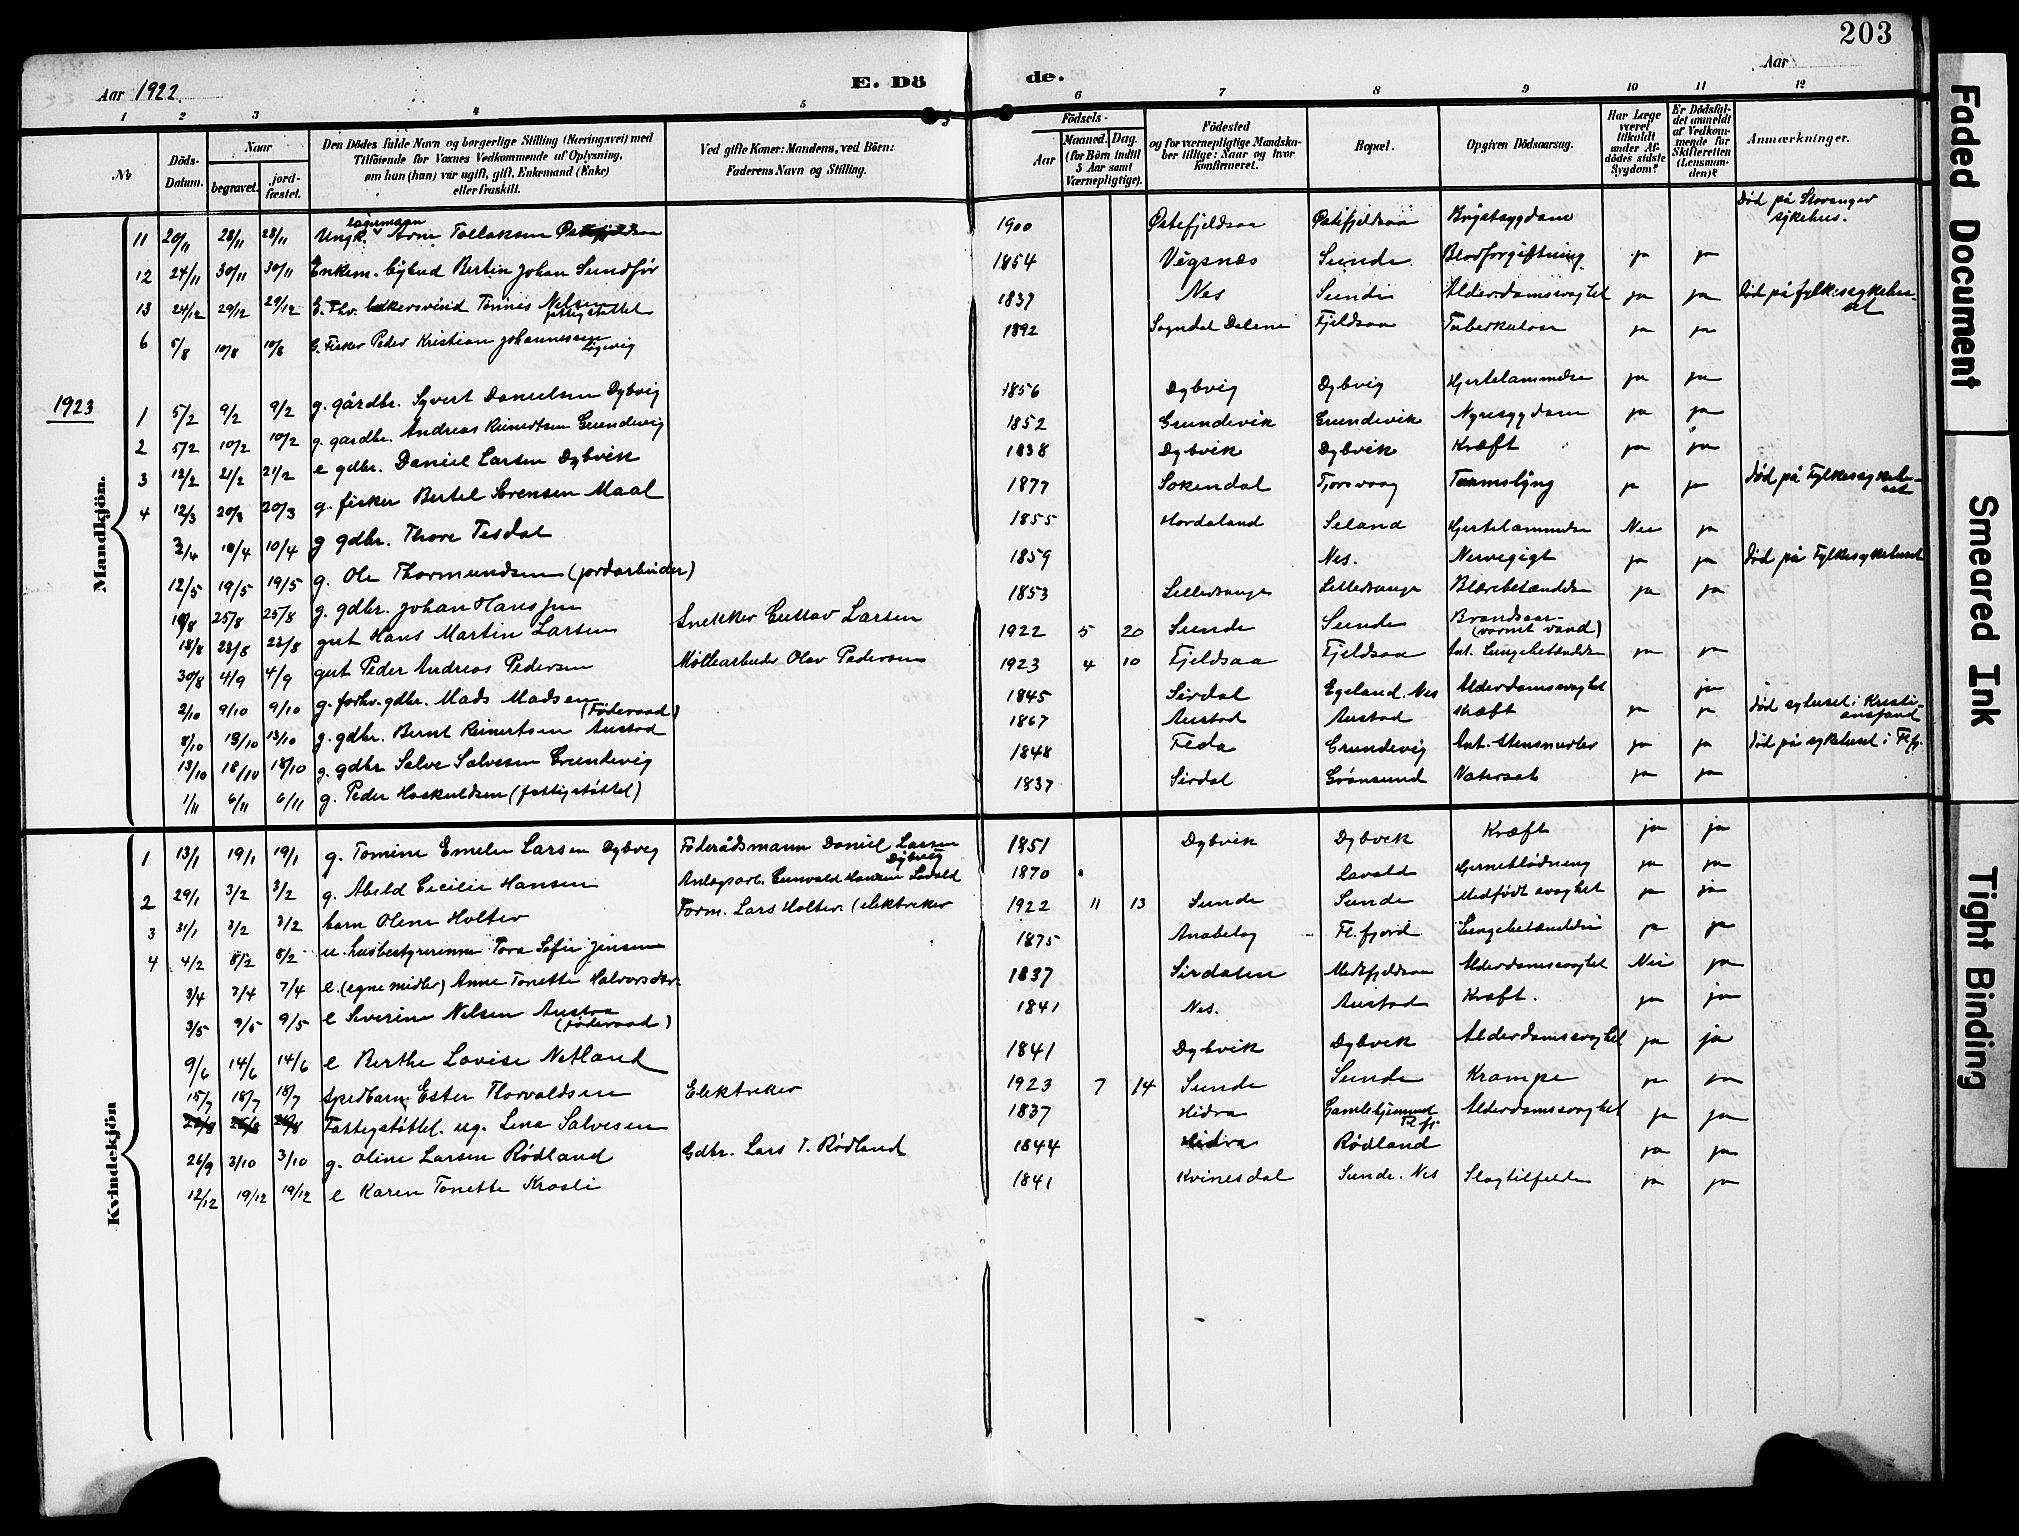 203
Aar 1922.
E. Dö de.
Aar
1 2 3 4 5 6 7 8 9 10 11 12
№
Döds-Datum.
Naar
begravet.
jord-fæstet.
Den Dödes fulde Navn og borgerlige Stilling (Næringsvei) med
Tilföiende for Voxnes Vedkommende af Oplysning,
om han (hun) var ugift, gift, Enkemand (Enke)
eller fraskilt.
Ved gifte Koner: Mandens, ved Börn:
Faderens Navn og Stilling.
Födsels-
Aar
Maaned. Dag.
(for Börn indtil 5 Aar samt Værnepligtige).
Födested
og for værnepligtige Mandskaber tillige: Naar og hvor konfirmeret.
Bopæl.
Opgiven Dödsaarsag.
Har Læge været tilkaldt under Afdödes sidste Sygdom?
Er Dödsfaldet anmeldt af Vedkommende for Skifteretten (Lensmanden)?
Anmærkninger.
Mandkjön.
11 20/11 28/11 28/11 Ungk. Arne Tollaksen 1900 Østefjeldsaa Østefjeldsaa Brystsygdom Død på Stavanger sykehus.
12 24/11 30/11 30/11 Enkem. bybud Bertin Johan Sundför 1854 Sunde Blodforgiftning ja ja
13 24/12 29/12 29/12 Tønnes Nelsen fattigstøttet 1837 Nes Sunde Alderdomssvaghet ja ja Død på fylkessykehuset
6 5/8 10/8 10/8 G. Fisker Peder Kristian Johannessen 1892 Sogndal Dalene Fjeldsaa Tuberkulose ja ja
1923
1 5/2 9/2 9/2 g. gårdbr. Syvert Danielsen Dybvig 1856 Dybvig Dybvig Hjertelammelse ja ja
2 5/2 10/2 10/2 g. gardbr. Andreas Reinertsen Grundevig 1852 Grundevik Grundevik Nyresygdom ja ja
3 12/2 21/2 21/2 e gdbr. Daniel Larsen Dybvik 1838 Dybvik Dybvik Kræft ja ja
4 12/3 20/3 20/3 g. fisker Bertel Sørensen Maal 1877 Sokendal Tjorsvaag Tarmslyng ja ja Død på Fylkessykehuset
10/4 10/4 g gdbr. Thore Tisdal 1855 Hordaland Seland Hjertelammelse Nei ja
12/5 19/5 19/5 g. Ole Thormundsen (jordarbeider) 1859 Nes. Nervegigt ja ja Død på Fylkessykehuset
25/8 25/8 g. gdbr. Johan Hanssen 1853 Lelledrange Lelledrange Blærebetændelse ja ja
18/8 23/8 23/8 gut Hans Martin Larsen Snekker Gustav Larsen 1922 5 20 Sunde Sunde Brandsaar (varmt vand)
30/8 4/9 4/9 gut Peder Andreas Pedersen Møllearbeider Olav Pedersen 1923 4 10 Fjeldsaa Fjeldsaa Ant. Lungebetændelse ja ja
2/10 9/10 9/10 g. forhv. gdbr. Mads Madsen (Føderaad) 1845 Sirdal Egeland. Nes Alderdomssvaghet ja
8/10 13/10 13/10 g. gdbr. Bernt Reinertsen Austad 1867 Austad Austad Kræft ja ja Død sykehuset i Kristiansand
13/10 18/10 18/10 g. gdbr Salve Salvesen Grundevig 1848 Feda Grundevig ja ja Død på sykehuset i Fl.fj.
1/11 6/11 6/11 g. Peder Haskuldsen (fattigstøttet) 1837 Sirdal Grønsund ja ja
Kvindekjön
1 13/1 19/1 19/1 g. Tomine Emelie Larsen Dybveg Føderådsmann Daniel Larsen Dybvig 1851 Dybvik Dybvik Kræft ja ja
2 29/1 3/2 3/2 g. Abeld Cecilie Hansen Anlegsarb. Gunvald Hansen Lavold 1870 Lavold Hjerneblødning ja ja
3 31/1 3/2 3/2 barn Olene Holter Form. Lars Holter (elektriker 1922 11 13 Sunde Sunde Medfødt svaghet ja ja
4 4/2 8/2 8/2 u. husbestyrerinne Tora Sofie Jensen 1875 Anabeløg Fl.fjord Lungebetændelse ja ja
3/4 7/4 7/4 e. (egne midler) Anne Tonette Halvorsdtr. 1837 Sirdalen Midtfjeldsaa Alderdomssvaghet Nei ja
3/5 9/5 9/5 e Severine Nelsen Austaa (føderaad) 1841 Nes. Austad Kræft. ja ja
9/6 14/6 14/6 e Berthe Lovise Netland 1841 Dybvik Dybvik Alderdomssvaghet ja ja
15/7 18/7 18/7 spedbarn Ester Thorvaldsen Elektriker 1923 7 14 Sunde Sunde Krampe ja ja
Fattigstøttet. ug. Lena Salvesen 1837 Hidra Gamlehjemmet Fl.fj. Alderdomssvaghet ja ja
26/9 3/10 3/10 g. Oline Larsen Rødland Gdbr. Lars T. Rødland 1844 Hidra Rødland ja ja
12/12 19/12 19/12 e Karen Tonette Krosli 1841 Kvinesdal Sunde. Nes Slagtilfelde ja ja
Faded Document
Smeared Ink
Tight Binding